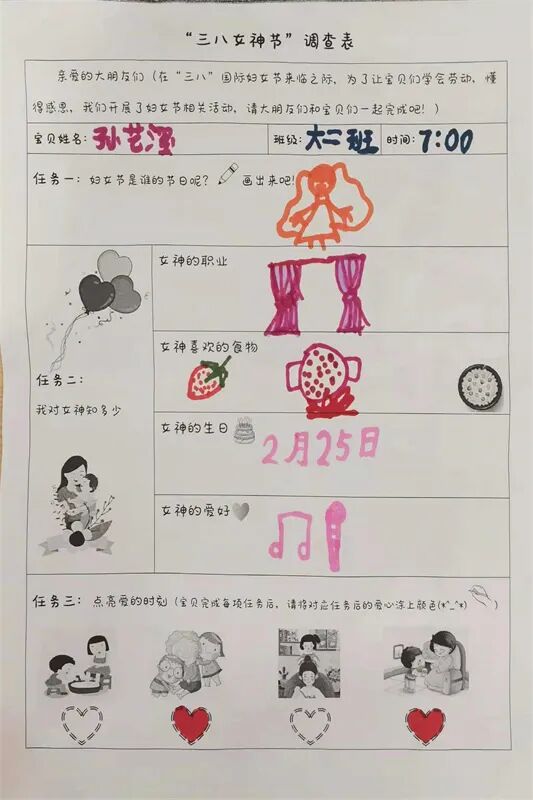 “三八女神节”调查表
亲爱的大朋友们(在“三八”国际妇女节来临之际,为了让宝贝们学会劳动,懂
得感恩,我们开展了妇女节相关活动,请大朋友们和宝贝们一起完成吧!)
宝贝姓名:孙艺溪 班级:大二班 时间:7:00
任务一:妇女节是谁的节日呢? 画出来吧!
女神的职业
女神喜欢的食物
任务二:
我对女神知多少
女神的生日
2月25日
女神的爱好
任务三:点亮爱的时刻(宝贝完成每项任务后,请将对应任务后的爱心涂上颜色(*^_^*) )